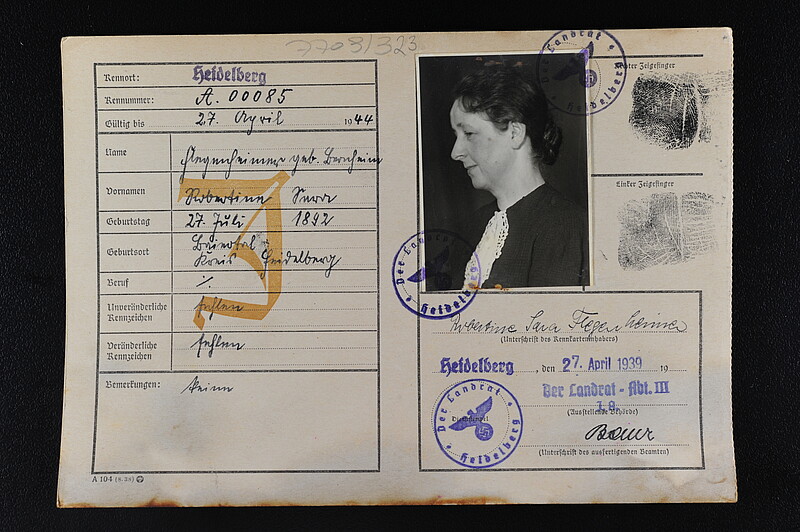 7708/323
Kennort: Heidelberg
Kennummer: A. 00085
Gültig bis 27. April 1944
Name Flegenheimer geb. Bernheim
Vornamen Robertine Sara
Geburtstag 27. Juli 1892
Geburtsort Baiertal
Kreis Heidelberg
Beruf ./.
Unveränderliche Kennzeichen fehlen
Veränderliche Kennzeichen fehlen
Bemerkungen: keine
J
A 104 (8. 38)
Der Landrat
Heidelberg
Der Landrat
Heidelberg
Rechter Zeigefinger
Linker Zeigefinger
Robertine Sara Flegenheimer
(Unterschrift des Kennkarteninhabers)
Heidelberg, den 27. April 1939 19
Der Landrat - Abt. III
(Ausstellende Behörde)
Der Landrat
Heidelberg
(Unterschrift des ausfertigenden Beamten)